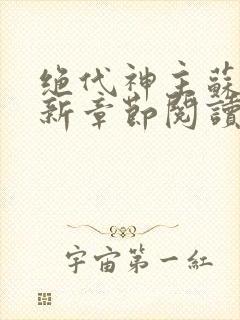 绝代神主蘇
新章節閱讀
宇宙第一紅